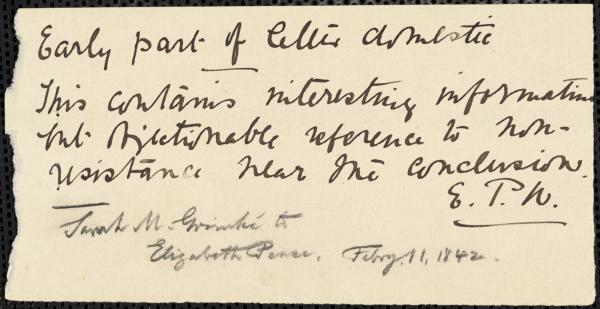 Early part of letter domestic
This contains interesting information
but objectionable reference to non-
resistance near the conclusion.
E. P. N.
Sarah M. Grimké to
Elizabeth Pease. Febry. 11, 1842.